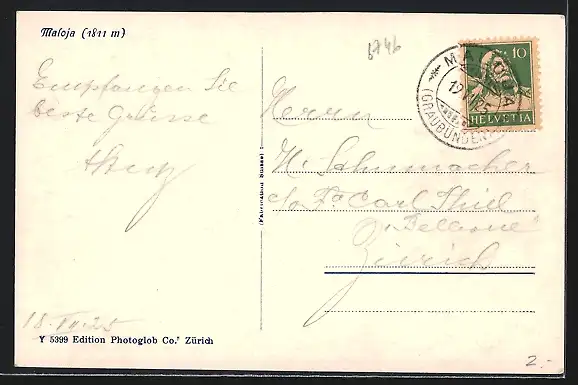 Maloja (1811 m)
6746
Empfangen Sie
beste Grüsse
MALOJA
19.VII.25
(GRAUBÜNDEN)
10
HELVETIA
Herrn
H. Schumacher
c/o Fa Carl Thiel
"Bellevue"
Zürich
(Fabrication Suisse)
18.VII.25
Y 5399 Edition Photoglob Co., Zürich
2.-